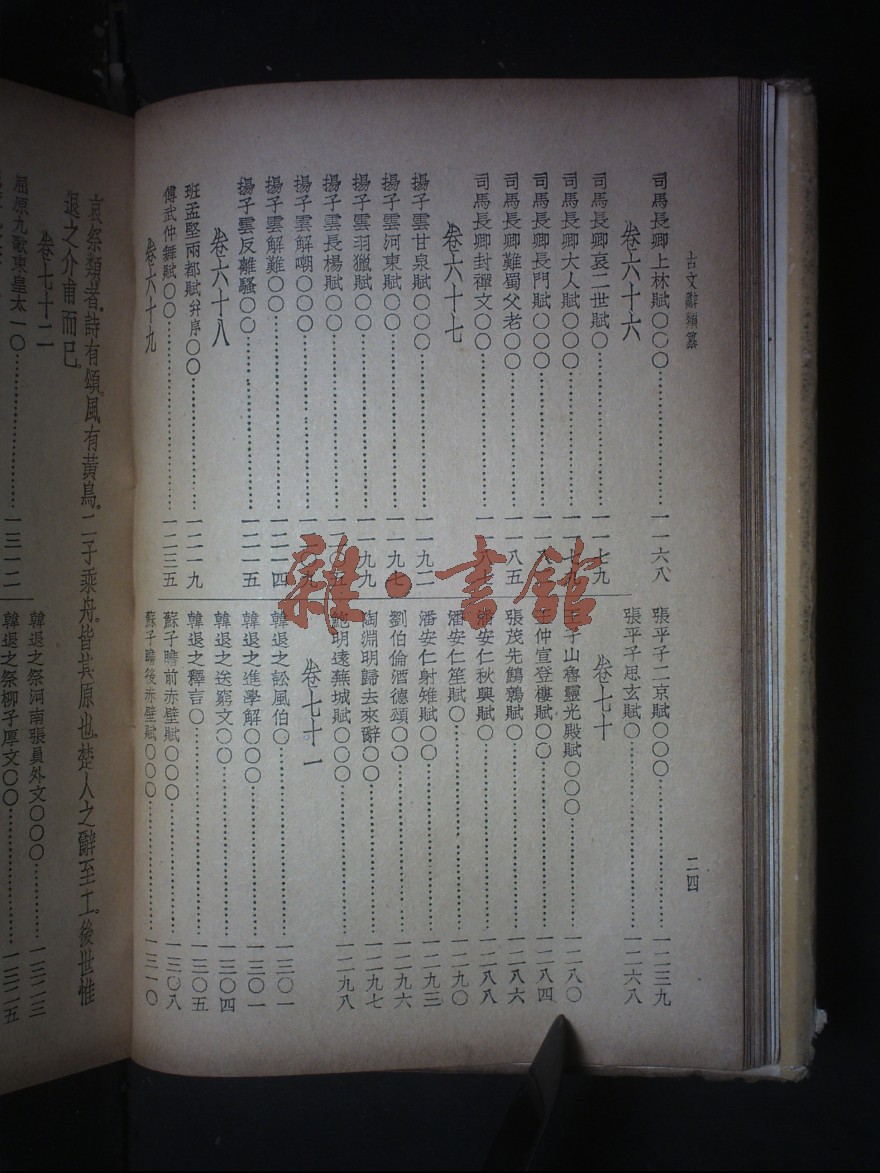 古文辭類纂
二四
司馬長卿上林賦〇〇〇……一一六八
卷六十六
司馬長卿哀二世賦〇……一一七九
司馬長卿大人賦〇〇〇……一一七九
司馬長卿長門賦〇〇〇
司馬長卿難蜀父老〇〇〇……一一八五
司馬長卿封禪文〇〇〇……一一八七
卷六十七
揚子雲甘泉賦〇〇〇……一一九二
揚子雲河東賦〇〇〇……一一九七
揚子雲羽獵賦〇〇〇……一一九九
揚子雲長楊賦〇〇〇
揚子雲解嘲〇〇〇
揚子雲解難〇〇〇……一二一四
揚子雲反離騷〇〇……一二一五
卷六十八
班孟堅兩都賦并序〇〇……一二一九
傅武仲舞賦〇〇……一二三五
卷六十九
張平子二京賦〇〇〇……一二三九
張平子思玄賦〇……一二六八
卷七十
王子山魯靈光殿賦〇〇〇……一二八〇
王仲宣登樓賦〇〇……一二八四
張茂先鷦鷯賦〇〇……一二八六
潘安仁秋興賦〇……一二八八
潘安仁笙賦〇……一二九〇
潘安仁射雉賦〇〇……一二九三
劉伯倫酒德頌〇〇……一二九六
陶淵明歸去來辭〇〇……一二九七
鮑明遠蕪城賦〇〇〇……一二九八
卷七十一
韓退之訟風伯〇……一三〇一
韓退之進學解〇〇〇……一三〇一
韓退之送窮文〇〇……一三〇四
韓退之釋言〇……一三〇五
蘇子瞻前赤壁賦〇〇〇……一三〇八
蘇子瞻後赤壁賦〇〇〇……一三一〇
哀祭類者，詩有頌，風有黃鳥，二子乘舟，皆其原也。楚人之辭至工，後世惟
退之介甫而已。
卷七十二
屈原九歌東皇太一〇……一三一二
韓退之祭河南張員外文〇〇〇……一三二三
韓退之祭柳子厚文〇〇……一三二五
雜·書館